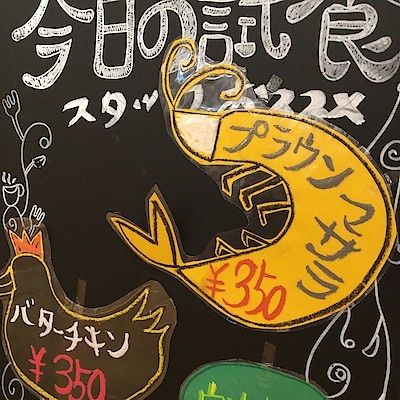 今日の試食
スタッフ
プラウンマサラ
¥350
バターチキン
¥350